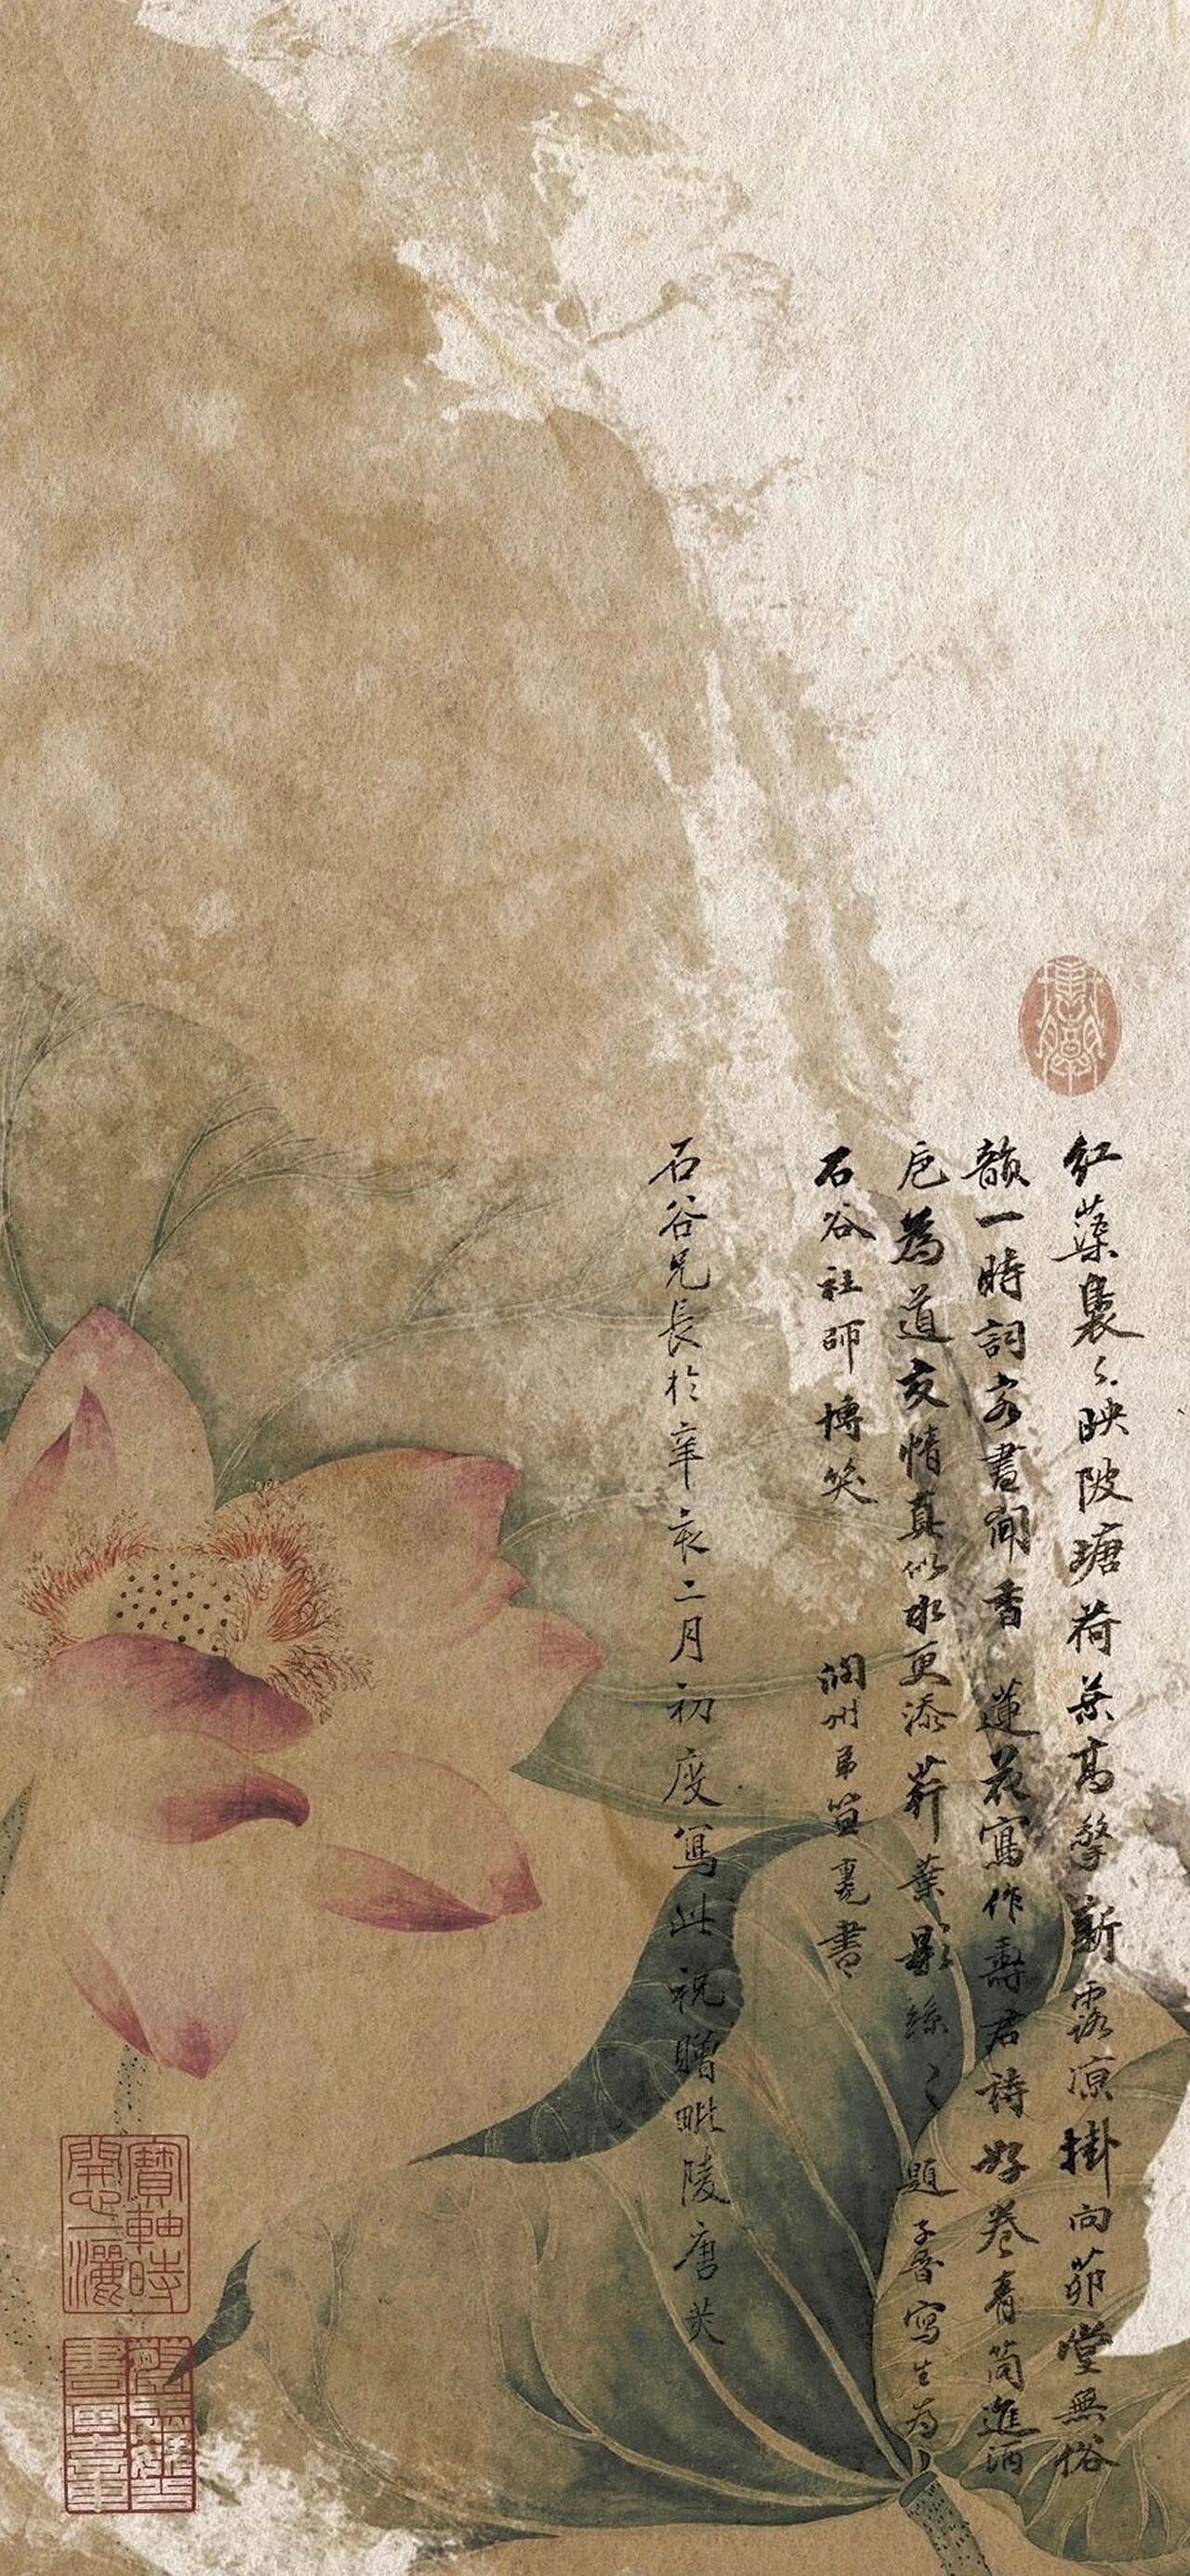 紅蕖裊〻映陂塘荷葉高擎新露凉掛向茆堂無俗
韻一時詞客晝聞香 蓮花寫作壽君詩好卷青筒進酒
卮為道交情真似水更添荇葉影絲〻 題子晉寫生為
石谷社師博笑 潤州弟笪重光書
石谷兄長於辛亥二月初度寫此祝贈毗陵唐炗
寶軸時開心一灑